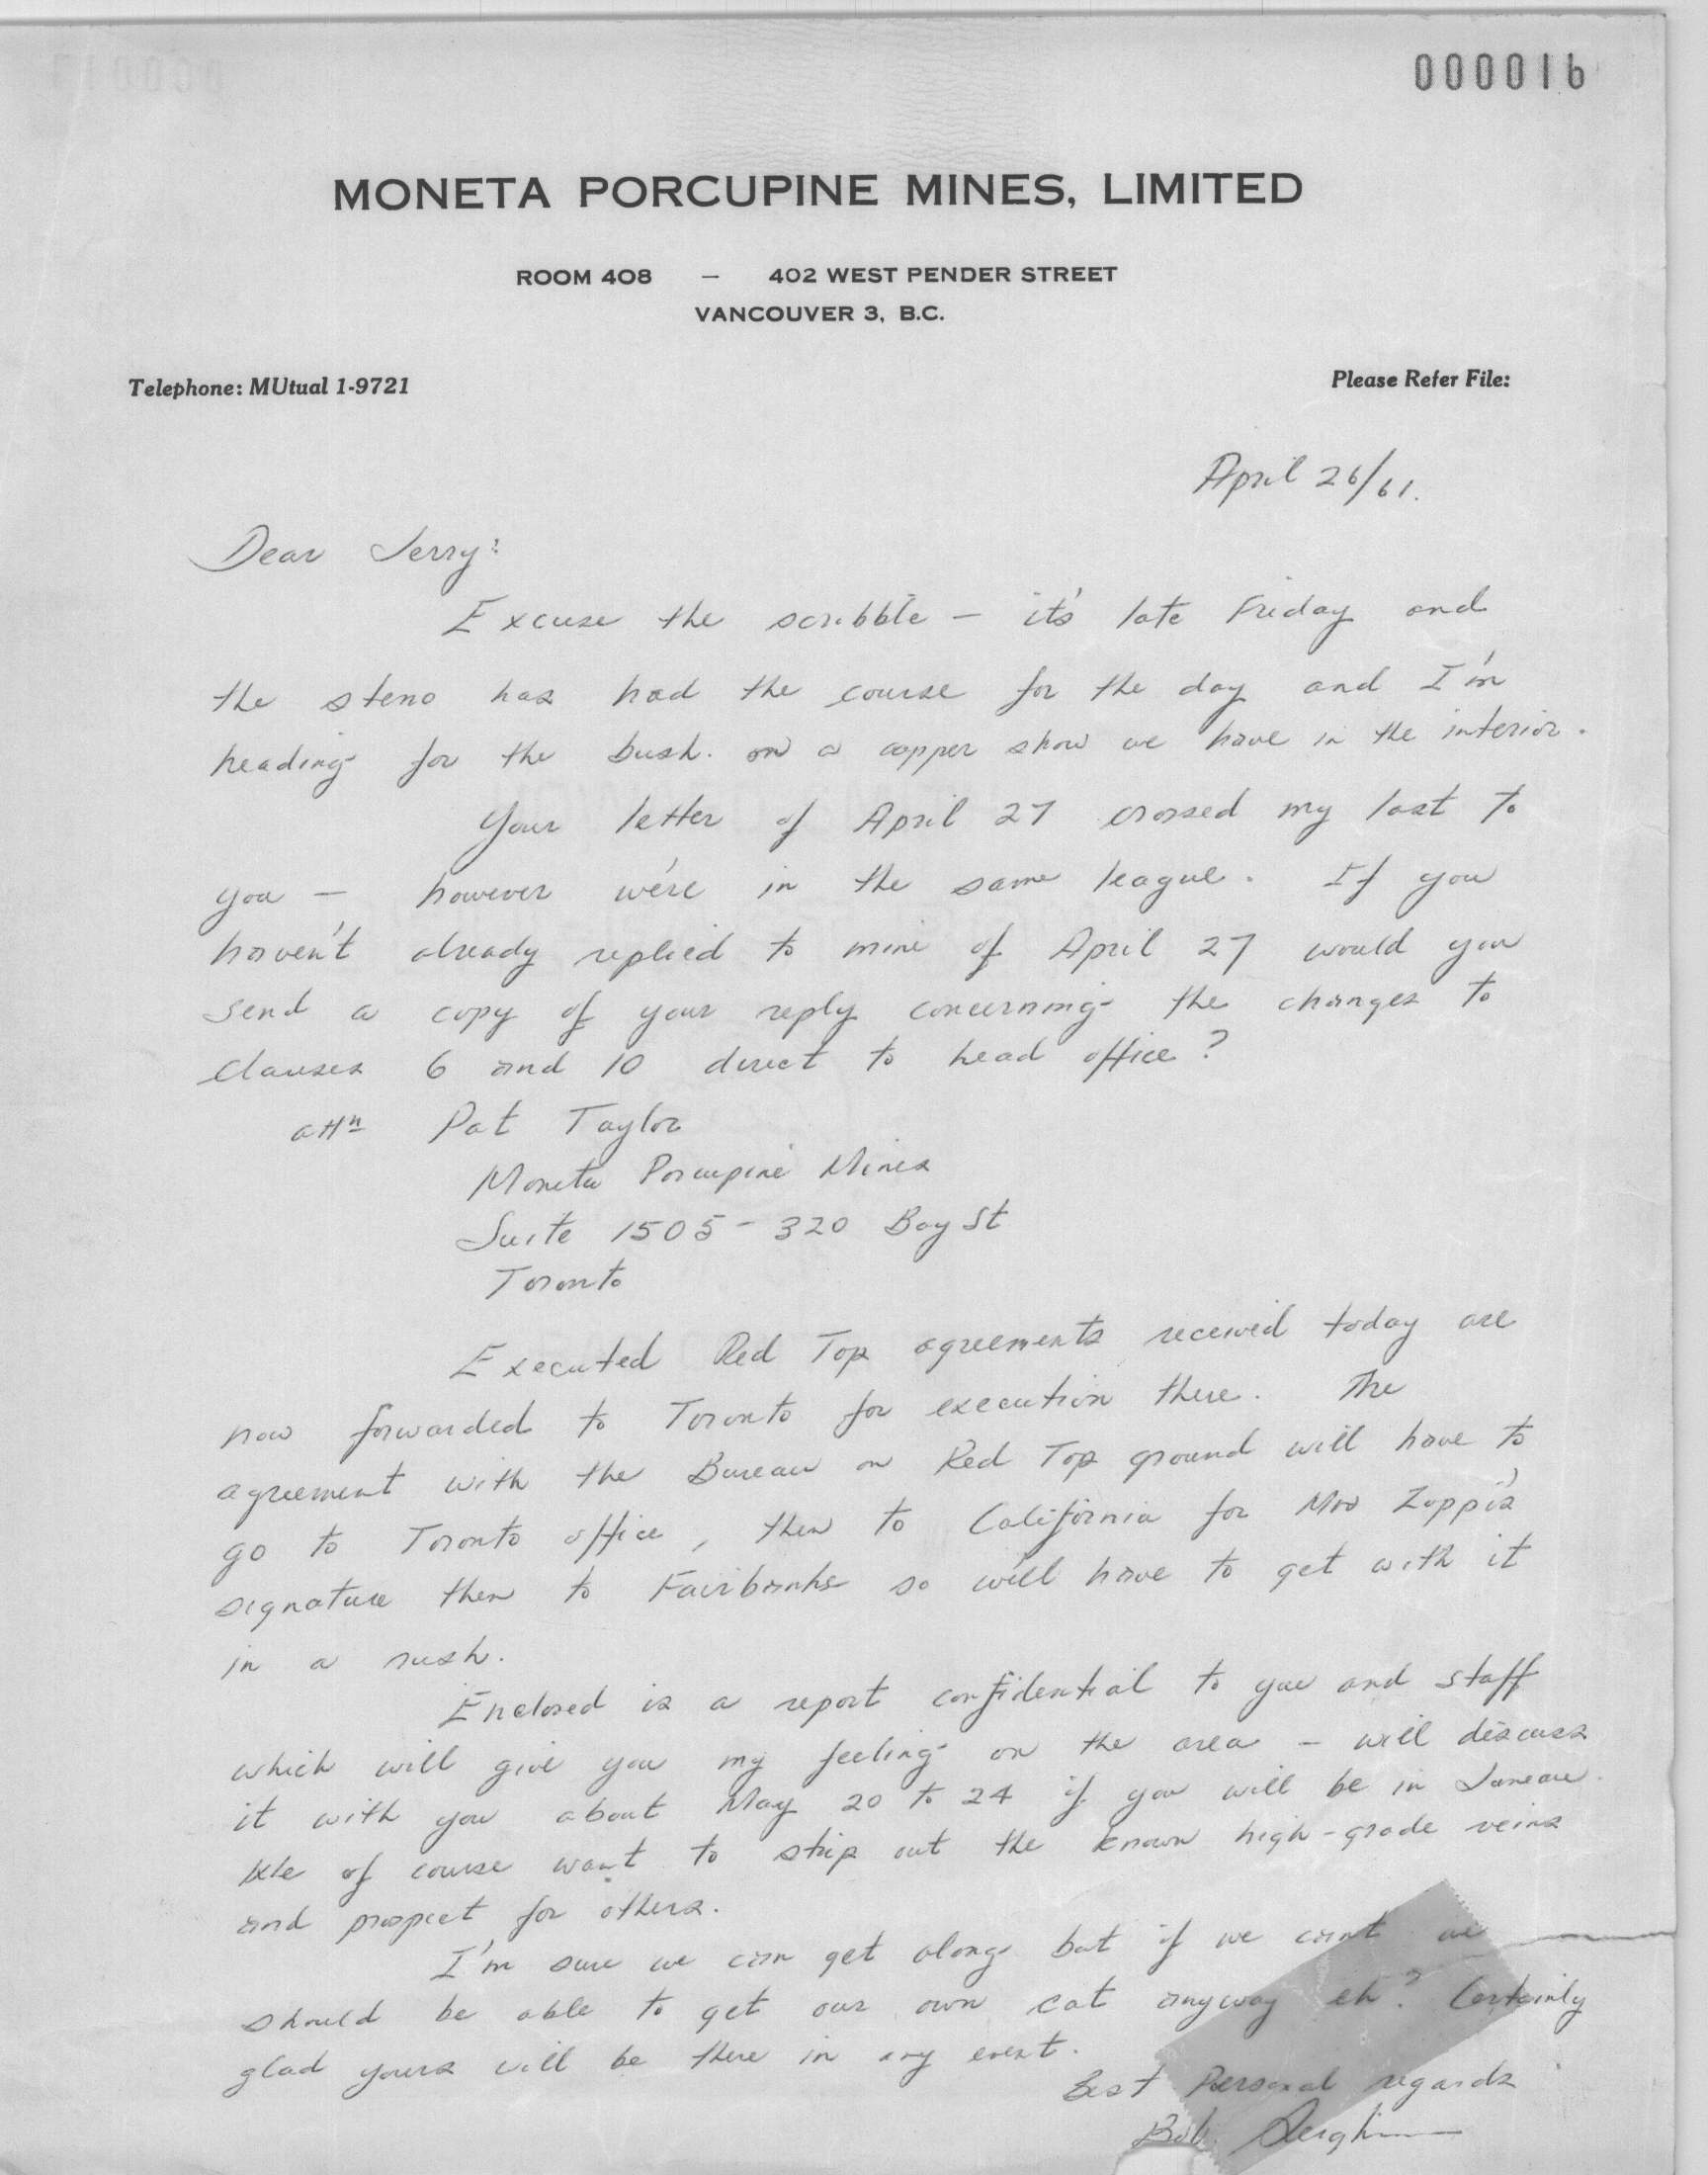 000016
MONETA PORCUPINE MINES, LIMITED
ROOM 408 — 402 WEST PENDER STREET
VANCOUVER 3, B.C.
Telephone: MUtual 1-9721
Please Refer File:
April 26/61.
Dear Jerry:
Excuse the scribble — it's late Friday and
the steno has had the course for the day and I'm
heading for the bush. on a copper show we have in the interior.
Your letter of April 27 crossed my last to
you — however we're in the same league. If you
haven't already replied to mine of April 27 would you
send a copy of your reply concerning the changes to
clauses 6 and 10 direct to head office?
attn Pat Taylor
Moneta Porcupine Mines
Suite 1505 - 320 Bay St
Toronto
Executed Red Top agreements received today are
now forwarded to Toronto for execution there. The
agreement with the Bureau on Red Top ground will have to
go to Toronto office, then to California for Mrs Zoppi's
signature then to Fairbanks so will have to get with it
in a rush.
Enclosed is a report confidential to you and staff
which will give you my feeling on the area — will discuss
it with you about May 20 to 24 if you will be in Juneau.
We of course want to strip out the known high-grade veins
and prospect for others.
I'm sure we can get along but if we can't we
should be able to get our own cat anyway eh? Certainly
glad yours will be there in any event.
Best Personal regards
Bob